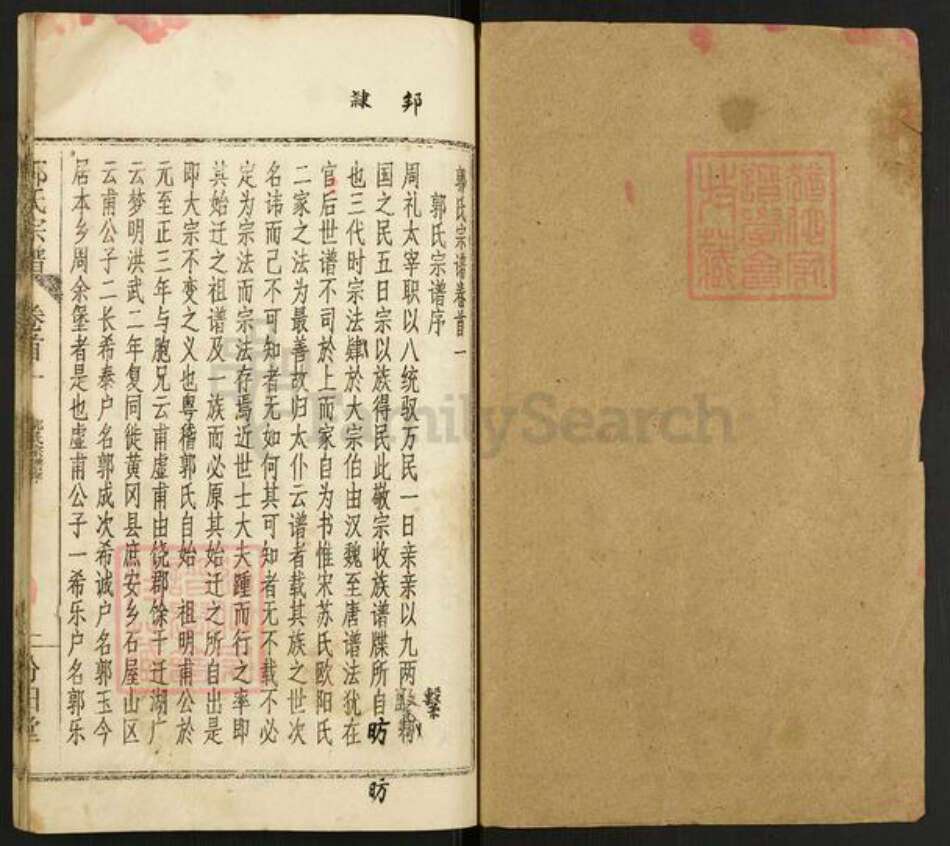 邦
隷
郭氏宗谱卷首一
郭氏宗谱序
周礼太宰职以八统驭万民一日亲亲以九两
繫
国之民五日宗以族得民此敬宗收族谱牒所自
昉
昉
也三代时宗法肆於大宗伯由汉魏至唐谱法犹在
官后世谱不司於上而家自为书惟宋苏氏欧阳氏
二家之法为最善故归太仆云谱者载其族之世次
名讳而己不可知者无如何其可知者无不载不必
定为宗法而宗法存焉近世士大夫踵而行之率即
其始迁之祖谱及一族而必原其始迁之所自出是
即大宗不变之义也粤稽郭氏自始 祖明甫公於
元至正三年与胞兄云甫虚甫由饶郡馀干迁湖广
云梦明洪武二年复同徙黄冈县庶安乡石屋山区
云甫公子二长希泰户名郭成次希诚户名郭玉今
居本乡周余堡者是也虚甫公子一希乐户名郭乐
郭氏宗谱
卷首一
FamilySearch